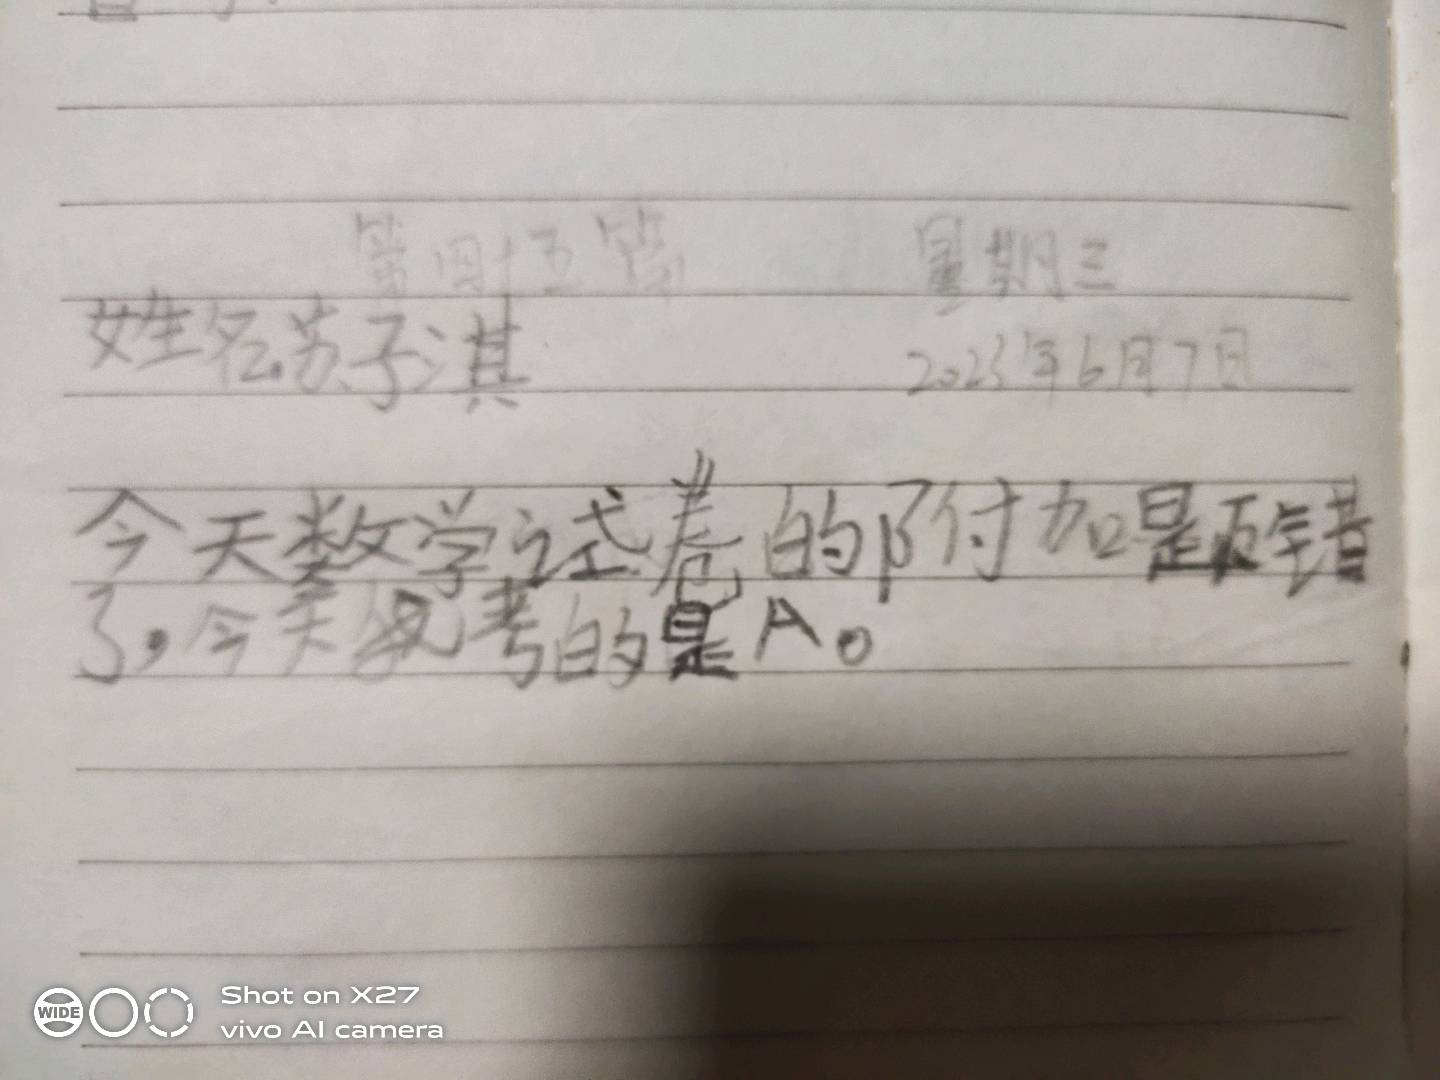 第四十五篇 星期三
姓名苏子淇 2023年6月7日
今天数学试卷的附加是题错
了,今天我考的是A。
WIDE
Shot on X27
vivo AI camera